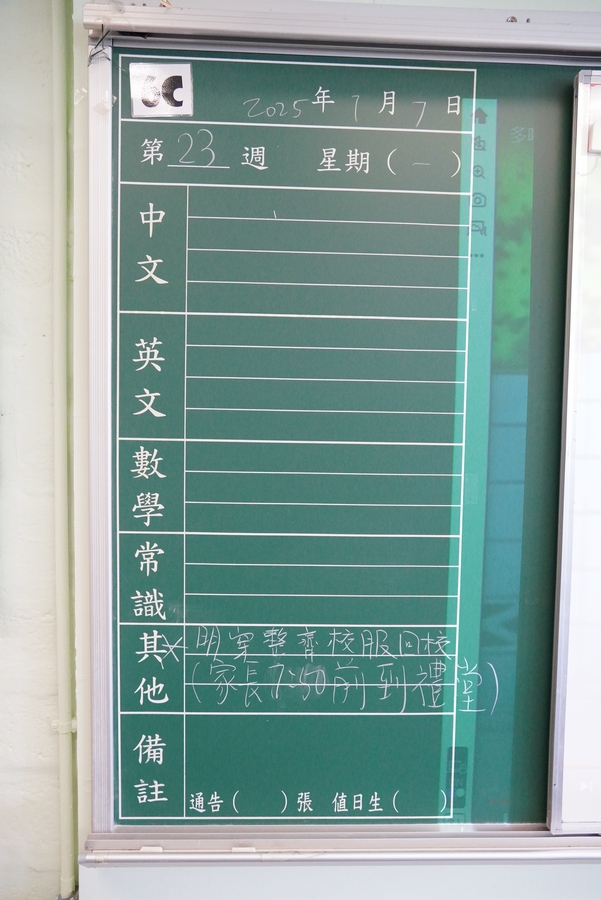 6C
2025年7月7日
第23週 星期(一)
中文
英文
數學
常識
其他
※明穿整齊校服回校
(家長7:50前到禮堂)
備註
通告( )張 值日生( )